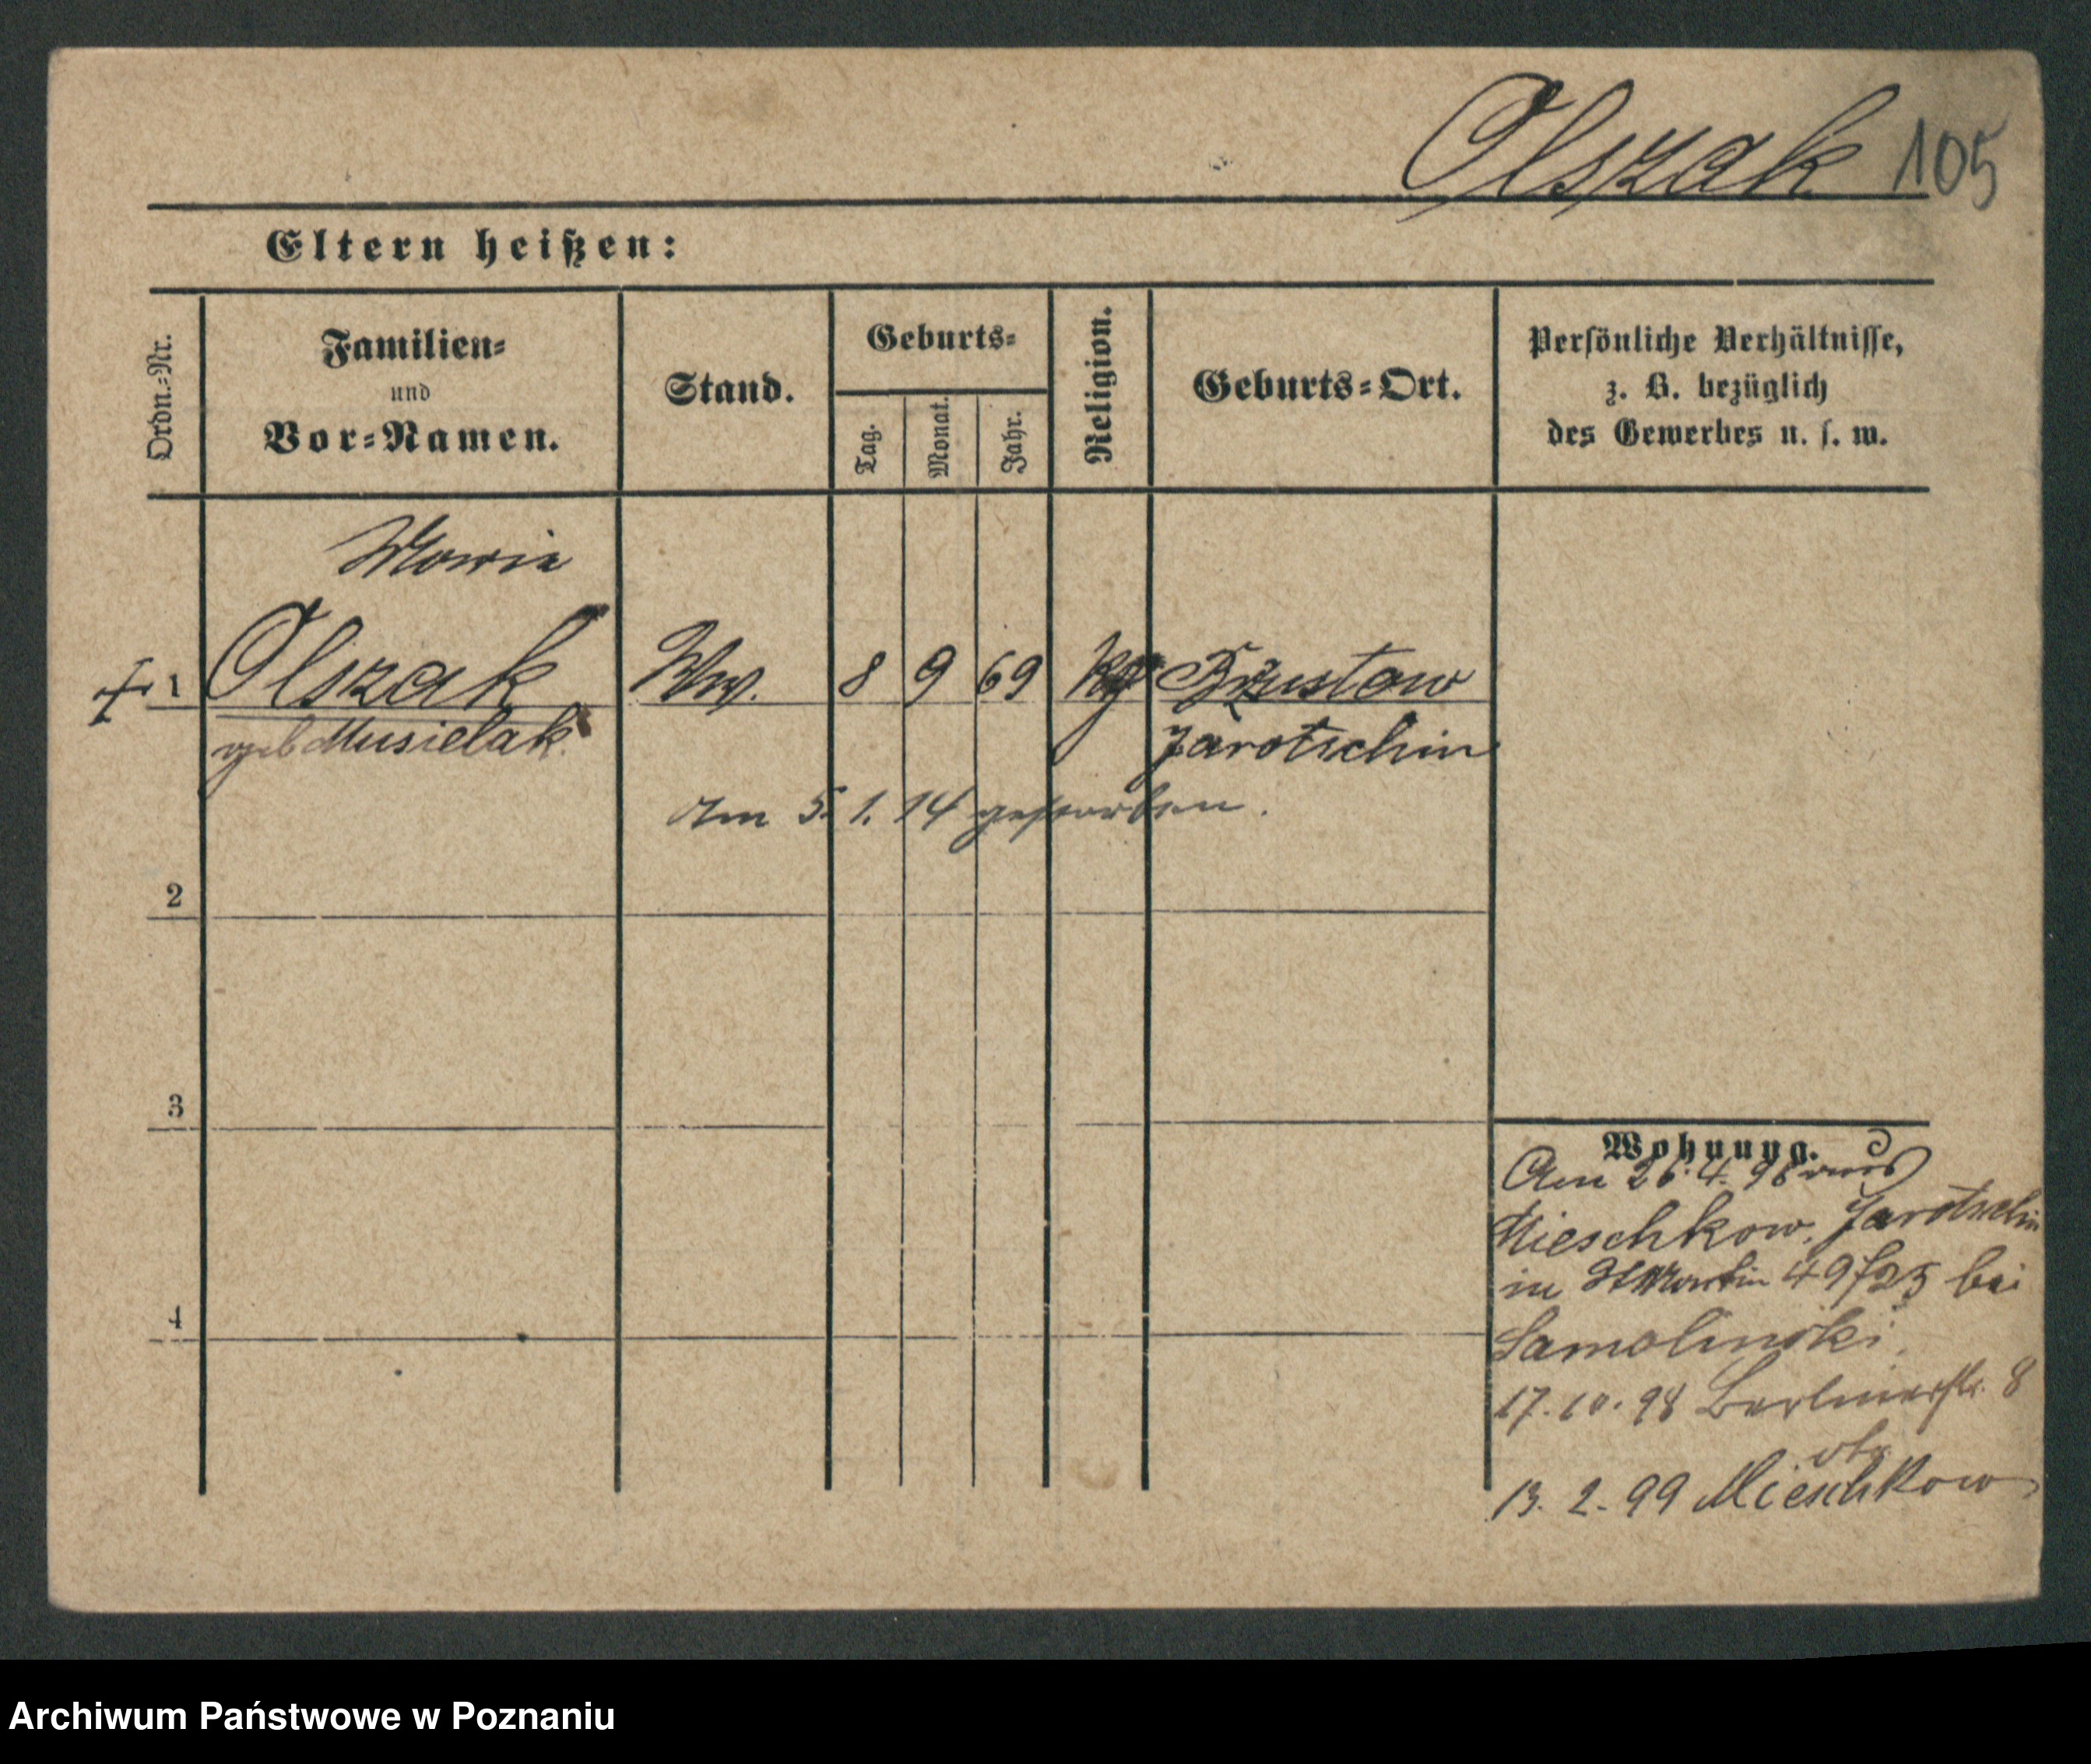 Olszak 105
Eltern heißen:
Ordn.-Nr.
Familien-
und
Vor-Namen.
Stand.
Geburts-
Tag.
Monat.
Jahr.
Religion.
Geburts-Ort.
Persönliche Verhältnisse,
z. B. bezüglich
des Gewerbes u. s. w.
Maria
1 Olszak Ww. 8 9 69 Brzustow
geb Musielak Jarotschin
Am 5. 1. 14 gestorben.
2
3
4
Wohnung.
Am 26. 4. 98 aus
Mieschkow, Jarotschin
in St Martin 49/25 bei
Samolinski.
17. 10. 98 Berlinerstr. 8
13. 2. 99 Mieschkow
Archiwum Państwowe w Poznaniu